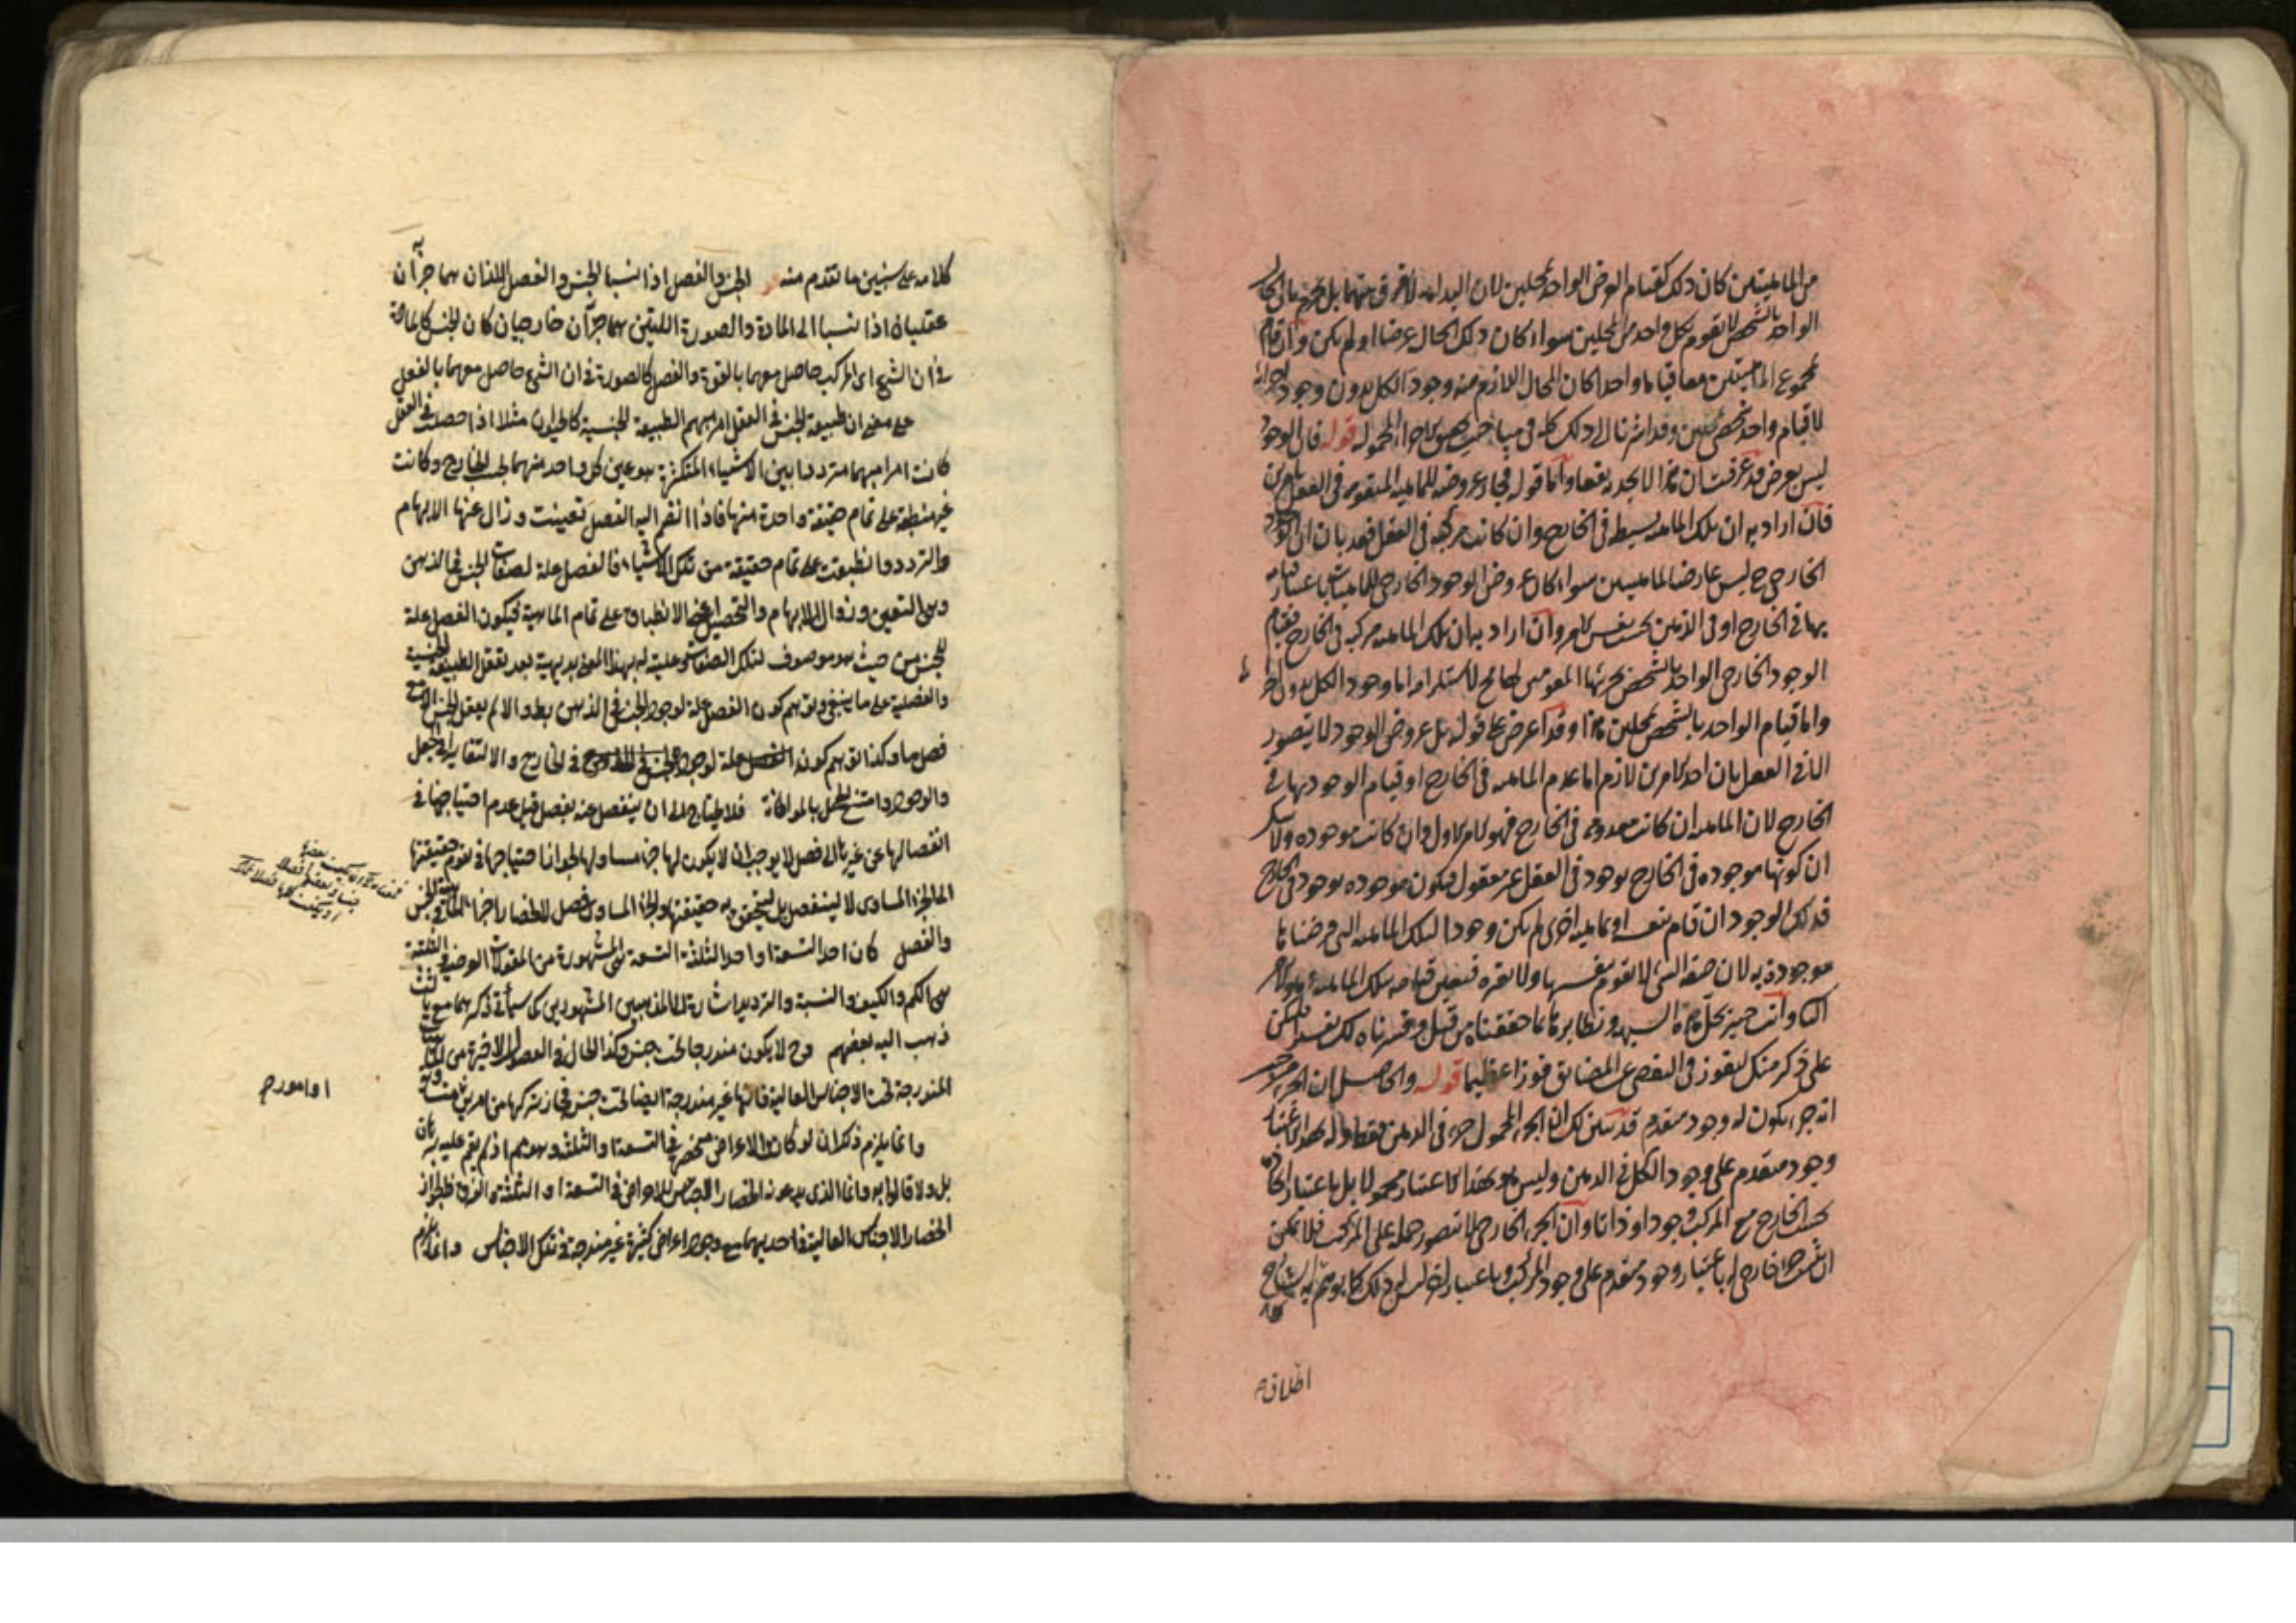 من الماهيتين كان ذلك كقيام العرض الواحد بمحلين لان البداهة لا تفرق بينهما بل تجزم بان الحال
الواحد بالشخص لا يقوم بكل واحد من المحلين سواء كان ذلك الحال عرضا او لم يكن وان قام
بمجموع الماهيتين معا قياما واحدا كان المحال اللازم منه وجود الكل بدون وجود اجزائه
لا قيام واحد شخصي بمحلين وقد اشرنا الى ذلك كله في مباحث الاجزاء المحمولة قوله فان الوجود
ليس بعرض قد عرفت ان هذا لا يجديه نفعا واما قوله فيجاز عروضه للماهية المتقومة في العقل بامرين
فان اراد به ان تلك الماهية بسيطة في الخارج وان كانت مركبة في العقل فهو بان الوجود
الخارجي ح ليس عارضا لماهيتين سواء كان عروض الوجود الخارجي للماهيات باعتبار قيامه
بها في الخارج او في الذهن بحسب نفس الامر وان اراد به ان تلك الماهية مركبة في الخارج فقيام
الوجود الخارجي الواحد بالشخص بجزئيها المقومين لها مح لاستلزامه اما وجود الكل بدون اجزائه
واما قيام الواحد بالشخص بمحلين هذا وقد اعترض على قوله بل عروض الوجود لا يتصور
الا في العقل بان احد الامرين لازم اما عدم الماهية في الخارج او قيام الوجود بها في
الخارج لان الماهية ان كانت معدومة في الخارج فهو الامر الاول وان كانت موجودة ولا شك
ان كونها موجودة في الخارج بوجود في العقل غير معقول فيكون موجودة بوجود في الخارج
فذلك الوجود ان قام بنفسه او بماهية اخرى لم يكن وجودا لتلك الماهية التي فرضناها
موجودة به لان صفة الشيء لا تقوم بنفسها ولا بغيره فتعين قيامه بتلك الماهية وهو الامر
الثاني وانت خبير بحل هذه الشبهة ونظايرها بما حققناه من قبل وفسرناه لك فليكن
على ذكر منك لتفوز في التفصي عن المضائق فوزا عظيما قوله والحاصل ان الجزء من حيث
انه جزء يكون له وجود متقدم قد تبين لك ان الجزء المحمول جزء في الذهن فقط وله بهذا الاعتبار
وجود متقدم على وجود الكل في الذهن وليس هو بهذا الاعتبار محمولا بل باعتبار اتحاده
بحسب الخارج مع المركب وجودا وذاتا وان الجزء الخارجي لا يتصور حمله على المركب فلا يمكن
ان يثبت جزء خارجي له باعتبار وجود متقدم على وجود المركب وباعتبار اخر ليس له ذلك كما يوهمه
اطلاقه
كلامه على سنين ما تقدم منه الجنس والفصل اذا نسبا الجنس والفصل اللذان هما جزآن
عقليان اذا نسبا الى المادة والصورة اللتين هما جزآن خارجيان كان الجنس كالمادة
في ان الشيء اي المركب حاصل معهما بالقوة والفصل كالصورة في ان الشيء حاصل معهما بالفعل
على معنى ان طبيعة الجنس في العقل امر مبهم الطبيعة الجنسية كالحيوان مثلا اذا حصلت في العقل
كانت امرا مبهما مترددا بين الاشياء المتكثرة هو عين كل واحد منهما بحسب الخارج وكانت
غير منطبقة على تمام حقيقة واحدة منها فاذا انضم اليه الفصل تعينت وزال عنها الابهام
والتردد وانطبقت على تمام حقيقة من تلك الاشياء فالفصل علة لصفات الجنس في الذهن
وهي التعين وزوال الابهام والتحصيل اعني الانطباق على تمام الماهية فيكون الفصل علة
للجنس من حيث هو موصوف لتلك الصفات وعليته له بهذا المعنى بديهية بعد تعقل الطبيعة الجنسية
والفصلية على ما ينبغي وتوهم كون الفصل علة لوجود الجنس في الذهن بط والا لم يعقل الجنس الا مع
فصل ما وكذا توهم كونه علة لوجود الجنس في الخارج والا لتغايرا في الجعل
والوجود وامتنع الحمل بالمواطاة فلا يحتاج الى ان ينفصل عنه بفصل قيل عدم احتياجها في
انفصالها عن غيرها الى فصل لا يوجب ان لا يكون لها جزء مساو لها لجواز احتياجها في تقوم حقيقتها
الى الجزء المساوي لا لينفصل بل ليتحقق به حقيقتها والجزء المساوي فصل لانحصار اجزاء الماهية في الجنس
والفصل كان احد التسعة او احد الثلثة التسعة هي المشهورة من المقولات العرضية والثلثة
هي الكم والكيف والنسبة والترديد اشارة الى المذهبين المشهورين كما سيأتي ذكرهما مع ثالث
ذهب اليه بعضهم وح لا يكون مندرجا تحت جنس وكذا الحال في الفصول الاخيرة من
المندرجة تحت الاجناس العالية فانها غير مندرجة ايضا تحت جنس فجاز تركبها من امرين متساويين
وانما يلزم ذلك ان لو كان الاعراض منحصرة في التسعة او الثلثة وهو مم اذ لم يقم عليه برهان
بل ولا قالوا به وانما الذي يدعونه انحصار الاجناس للاعراض في التسعة او الثلثة والفرق ظ لجواز
انحصار الاجناس العالية في احديهما مع وجود اعراض كثيرة غير مندرجة في تلك الاجناس وانما يلزم
او امور م